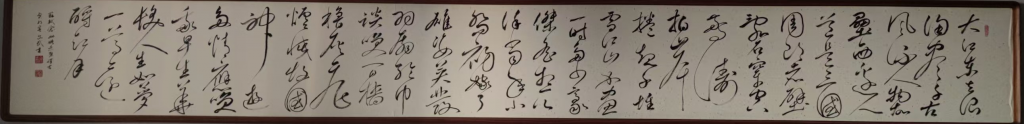 大江東去浪
淘盡千古
風流人物故
壘西邊人
道是三國
周郎赤壁
亂石穿空
驚濤
拍岸
捲起千堆
雪江山如畫
一時多少豪
傑遙想公
瑾當年小
喬初嫁了
雄姿英發
羽扇綸巾
談笑間檣
櫓灰飛
煙滅故國
神遊
多情應笑
我早生華
髮人生如夢
一尊還
酹江月